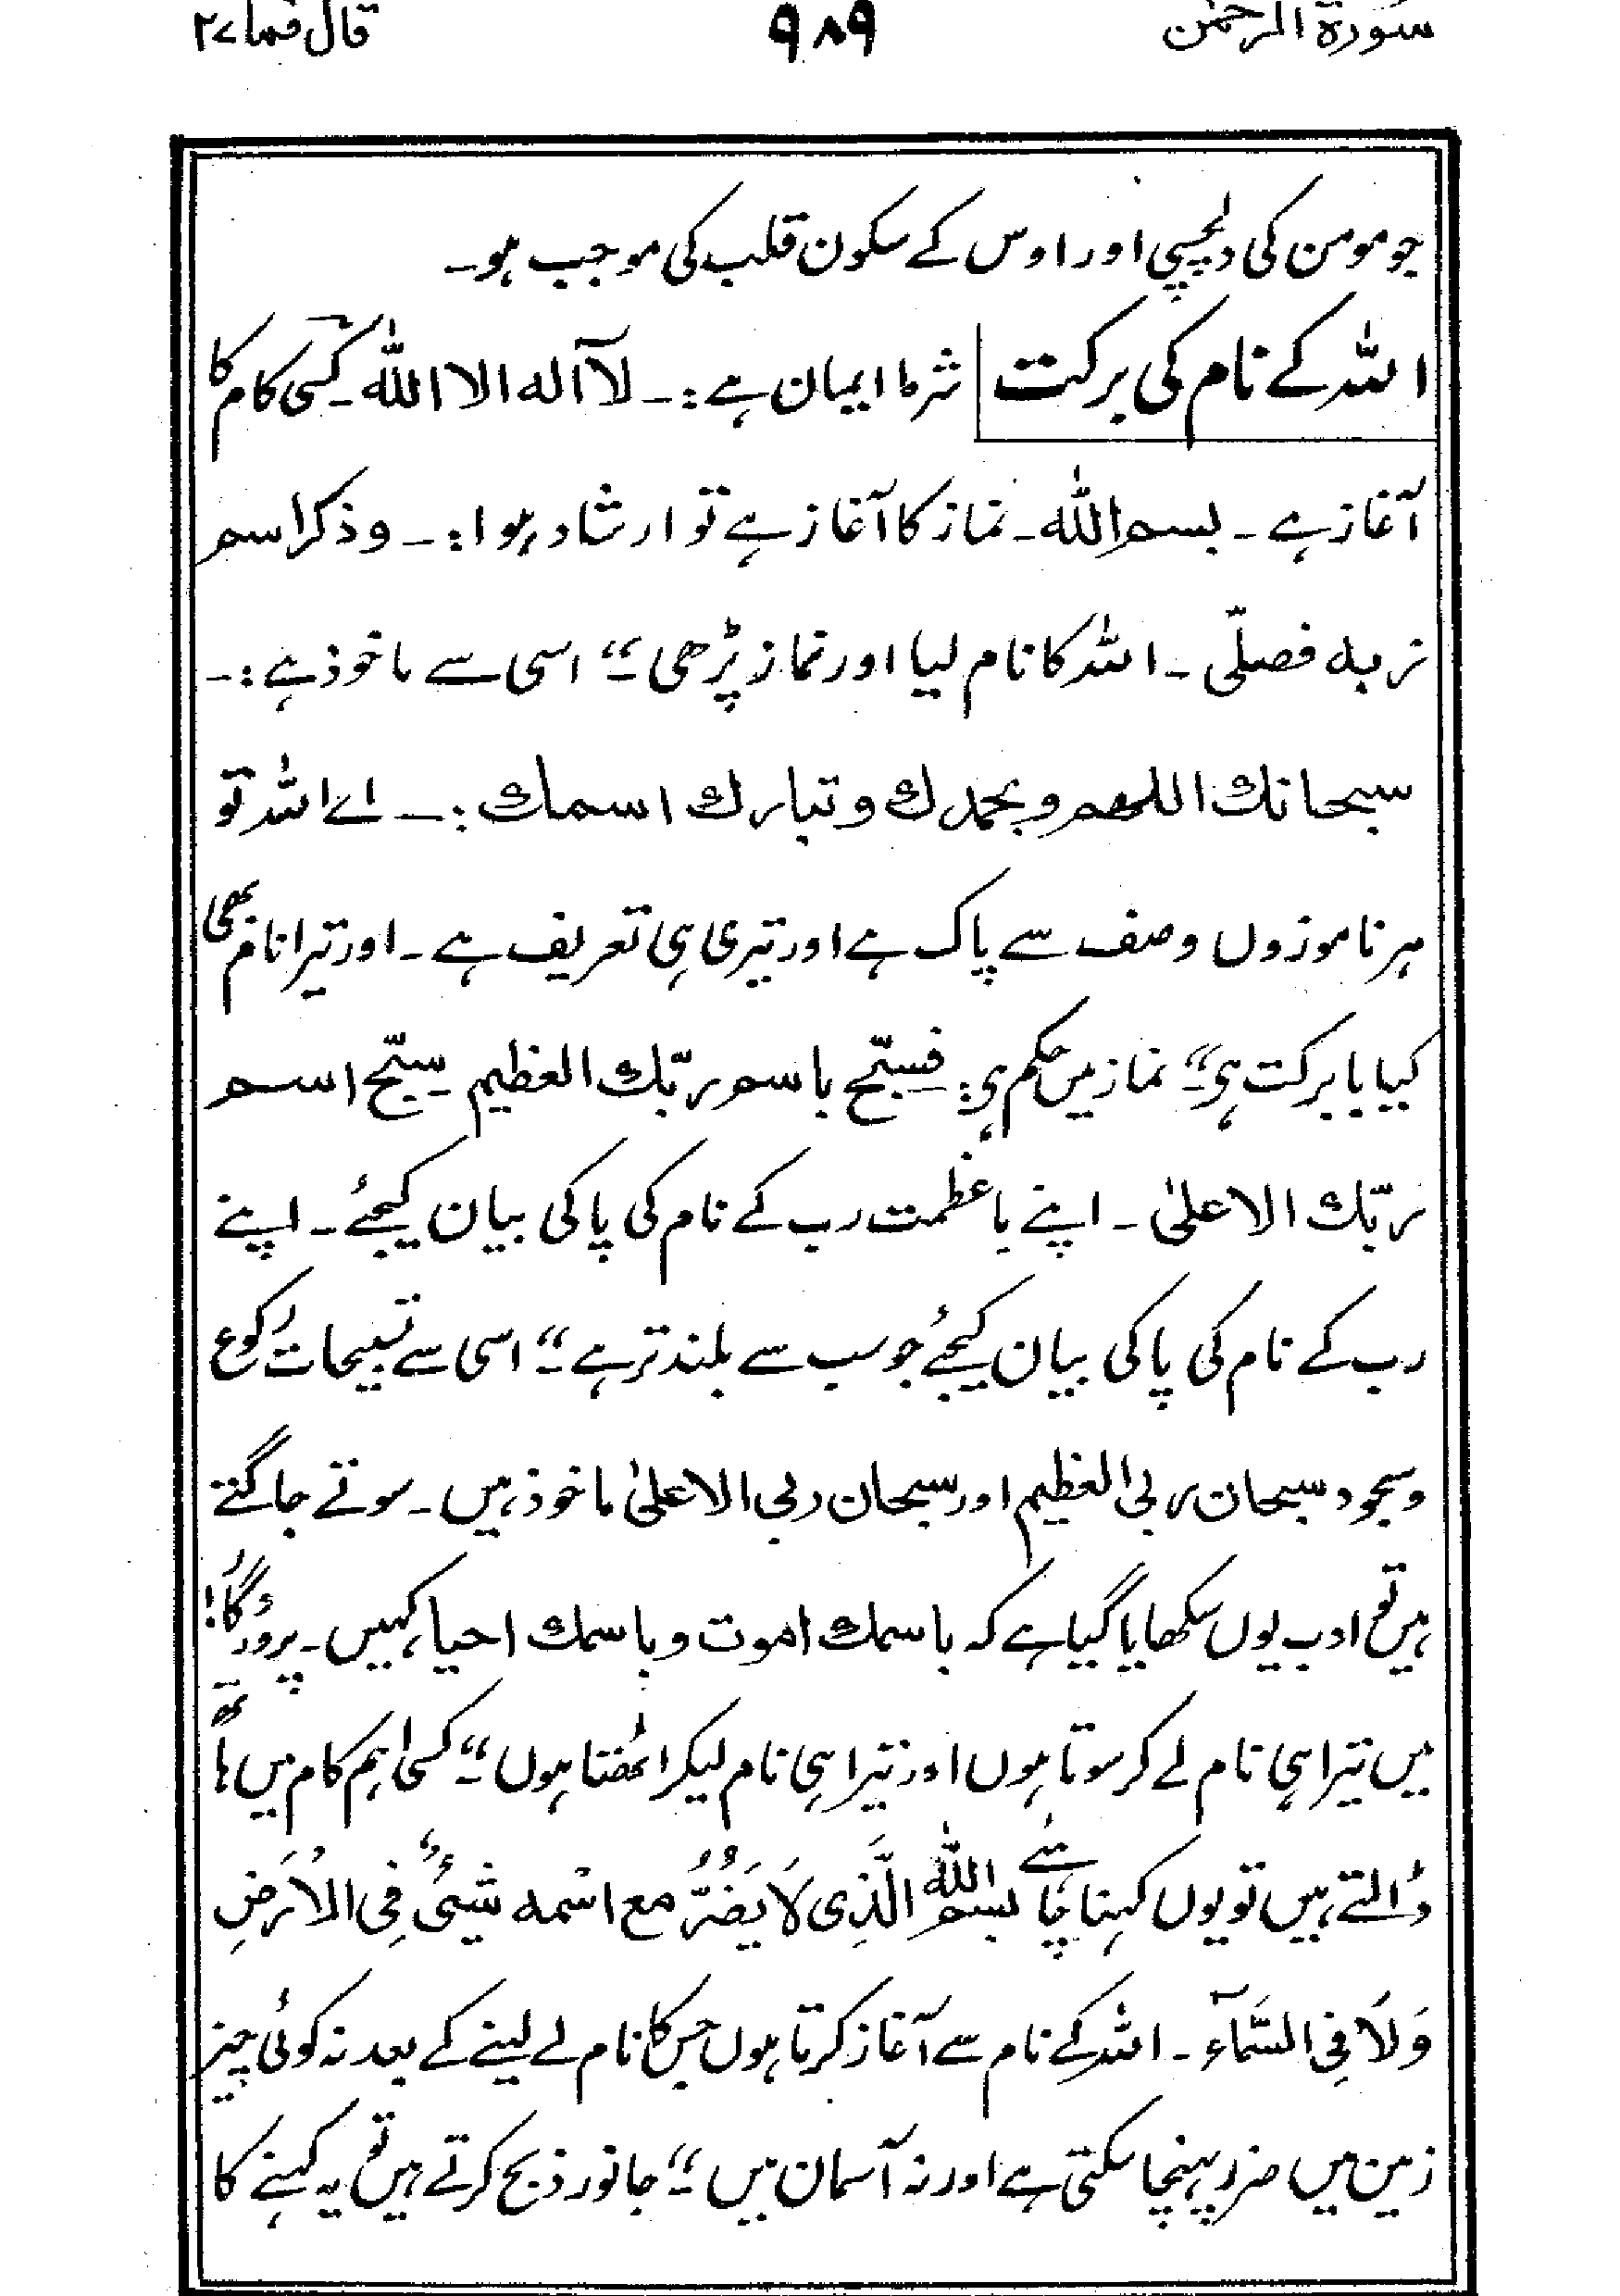 سورة الرحمٰن ۹۸۹ قال فما ۲۷
جو مومن کی دلچسپی اور اوس کے سکون قلب کی موجب ہو۔
اللہ کے نام کی برکت شرط ایمان ہے:۔ لآ اله الا اللّٰه۔ کسی کام کا
آغاز ہے۔ بسم اللّٰه۔ نماز کا آغاز ہے تو ارشاد ہوا:۔ وذکر اسم
ربه فصلّی۔ اللہ کا نام لیا اور نماز پڑھی۔“ اسی سے ماخوذ ہے:۔
سبحانك اللهم وبحمدك وتبارك اسمك:۔ اے اللہ تو
ہر ناموزوں وصف سے پاک ہے اور تیری ہی تعریف ہے۔ اور تیرا نام بھی
کیا بابرکت ہی۔“ نماز میں حکم ہی: فسبّح باسم ربّك العظیم۔ سبّح اسم
ربّك الاعلیٰ۔ اپنے باعظمت رب کے نام کی پاکی بیان کیجئے۔ اپنے
رب کے نام کی پاکی بیان کیجئے جو سب سے بلند تر ہے۔“ اسی سے تسبیحات رکوع
وسجود سبحان ربی العظیم اور سبحان ربی الاعلیٰ ماخوذ ہیں۔ سوتے جاگتے
ہیں تو ادب یوں سکھایا گیا ہے کہ باسمك اموت وباسمك احیا کہیں۔ پروردگار!
میں تیرا ہی نام لے کر سوتا ہوں اور تیرا ہی نام لیکر اٹھتا ہوں۔“ کسی اہم کام میں ہاتھ
ڈالتے ہیں تو یوں کہنا چاہئے بسم اللّٰه الَّذِی لَا یَضُرُّ مع اسْمه شیْئٌ فِی الْاَرْضِ
وَلَا فِی السَّمَآء۔ اللہ کے نام سے آغاز کرتا ہوں جس کا نام لے لینے کے بعد نہ کوئی چیز
زمین میں ضرر پہنچا سکتی ہے اور نہ آسمان میں۔“ جانور ذبح کرتے ہیں تو یہ کہنے کا